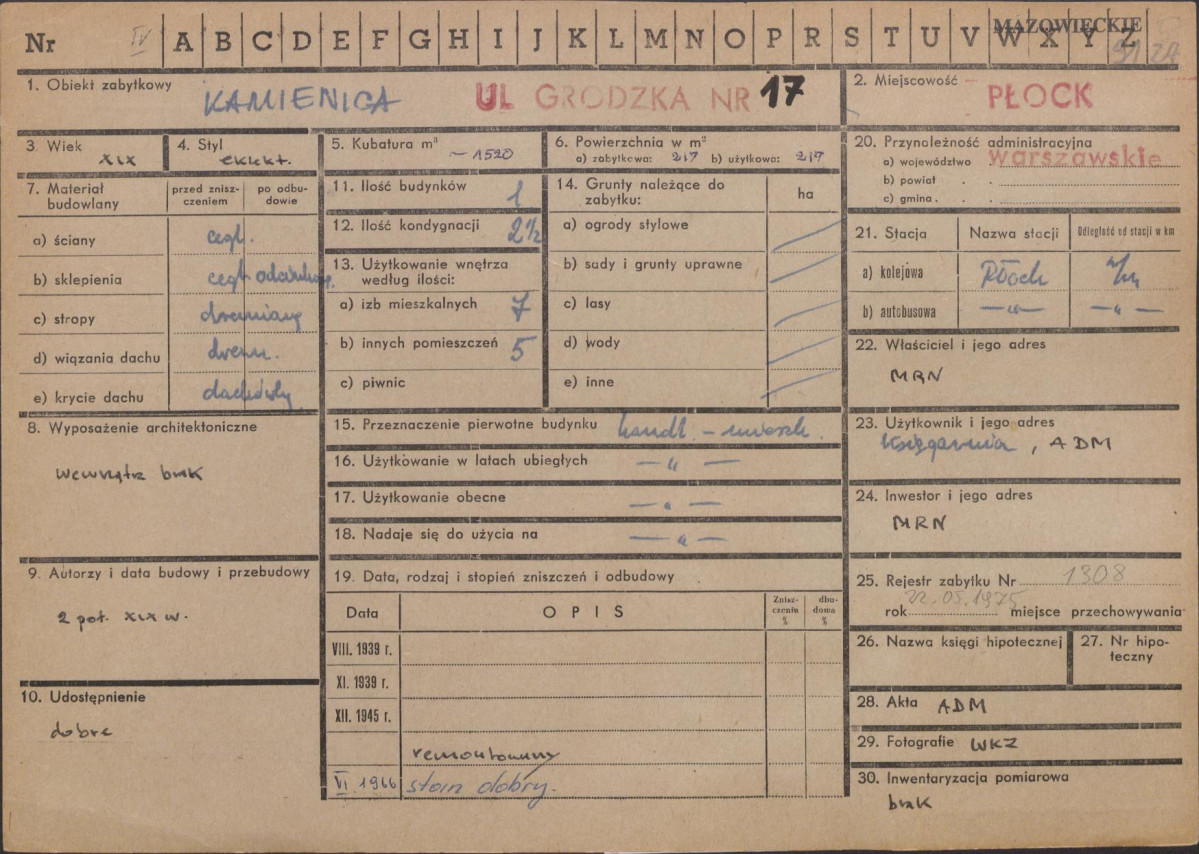 Nr IV A B C D E F G H I J K L M N O P R S T U V W X Y Z
MAZOWIECKIE
1. Obiekt zabytkowy KAMIENICA UL GRODZKA NR 17
2. Miejscowość PŁOCK
3. Wiek XIX
4. Styl eklekt.
5. Kubatura m³ ~ 1520
6. Powierzchnia w m²
a) zabytkowa: 217 b) użytkowa: 217
7. Materiał budowlany
przed znisz-
czeniem
po odbu-
dowie
a) ściany cegł.
b) sklepienia cegł odcinkowe.
c) stropy drewniane
d) wiązania dachu drewn.
e) krycie dachu dachówką
8. Wyposażenie architektoniczne
wewnątrz brak
9. Autorzy i data budowy i przebudowy
2 poł. XIX w.
10. Udostępnienie
dobre
11. Ilość budynków 1
12. Ilość kondygnacji 2 1/2
13. Użytkowanie wnętrza
według ilości:
a) izb mieszkalnych 7
b) innych pomieszczeń 5
c) piwnic
14. Grunty należące do
zabytku:
ha
a) ogrody stylowe
b) sady i grunty uprawne
c) lasy
d) wody
e) inne
15. Przeznaczenie pierwotne budynku handl. - mieszk.
16. Użytkowanie w latach ubiegłych — " —
17. Użytkowanie obecne — " —
18. Nadaje się do użycia na — " —
19. Data, rodzaj i stopień zniszczeń i odbudowy
Data OPIS
Znisz-
czenia
%
dbu-
dowa
%
VIII. 1939 r.
XI. 1939 r.
XII. 1945 r.
remontowany
VI 1966 stan dobry.
20. Przynależność administracyjna
a) województwo warszawskie
b) powiat . .
c) gmina . .
21. Stacja Nazwa stacji Odległość od stacji w km
a) kolejowa Płock
b) autobusowa — " — — " —
22. Właściciel i jego adres
MRN
23. Użytkownik i jego adres
Księgarnia, ADM
24. Inwestor i jego adres
MRN
25. Rejestr zabytku Nr 1308
rok 22.05.1975 miejsce przechowywania
26. Nazwa księgi hipotecznej
27. Nr hipo-
teczny
28. Akta ADM
29. Fotografie WKZ
30. Inwentaryzacja pomiarowa
brak